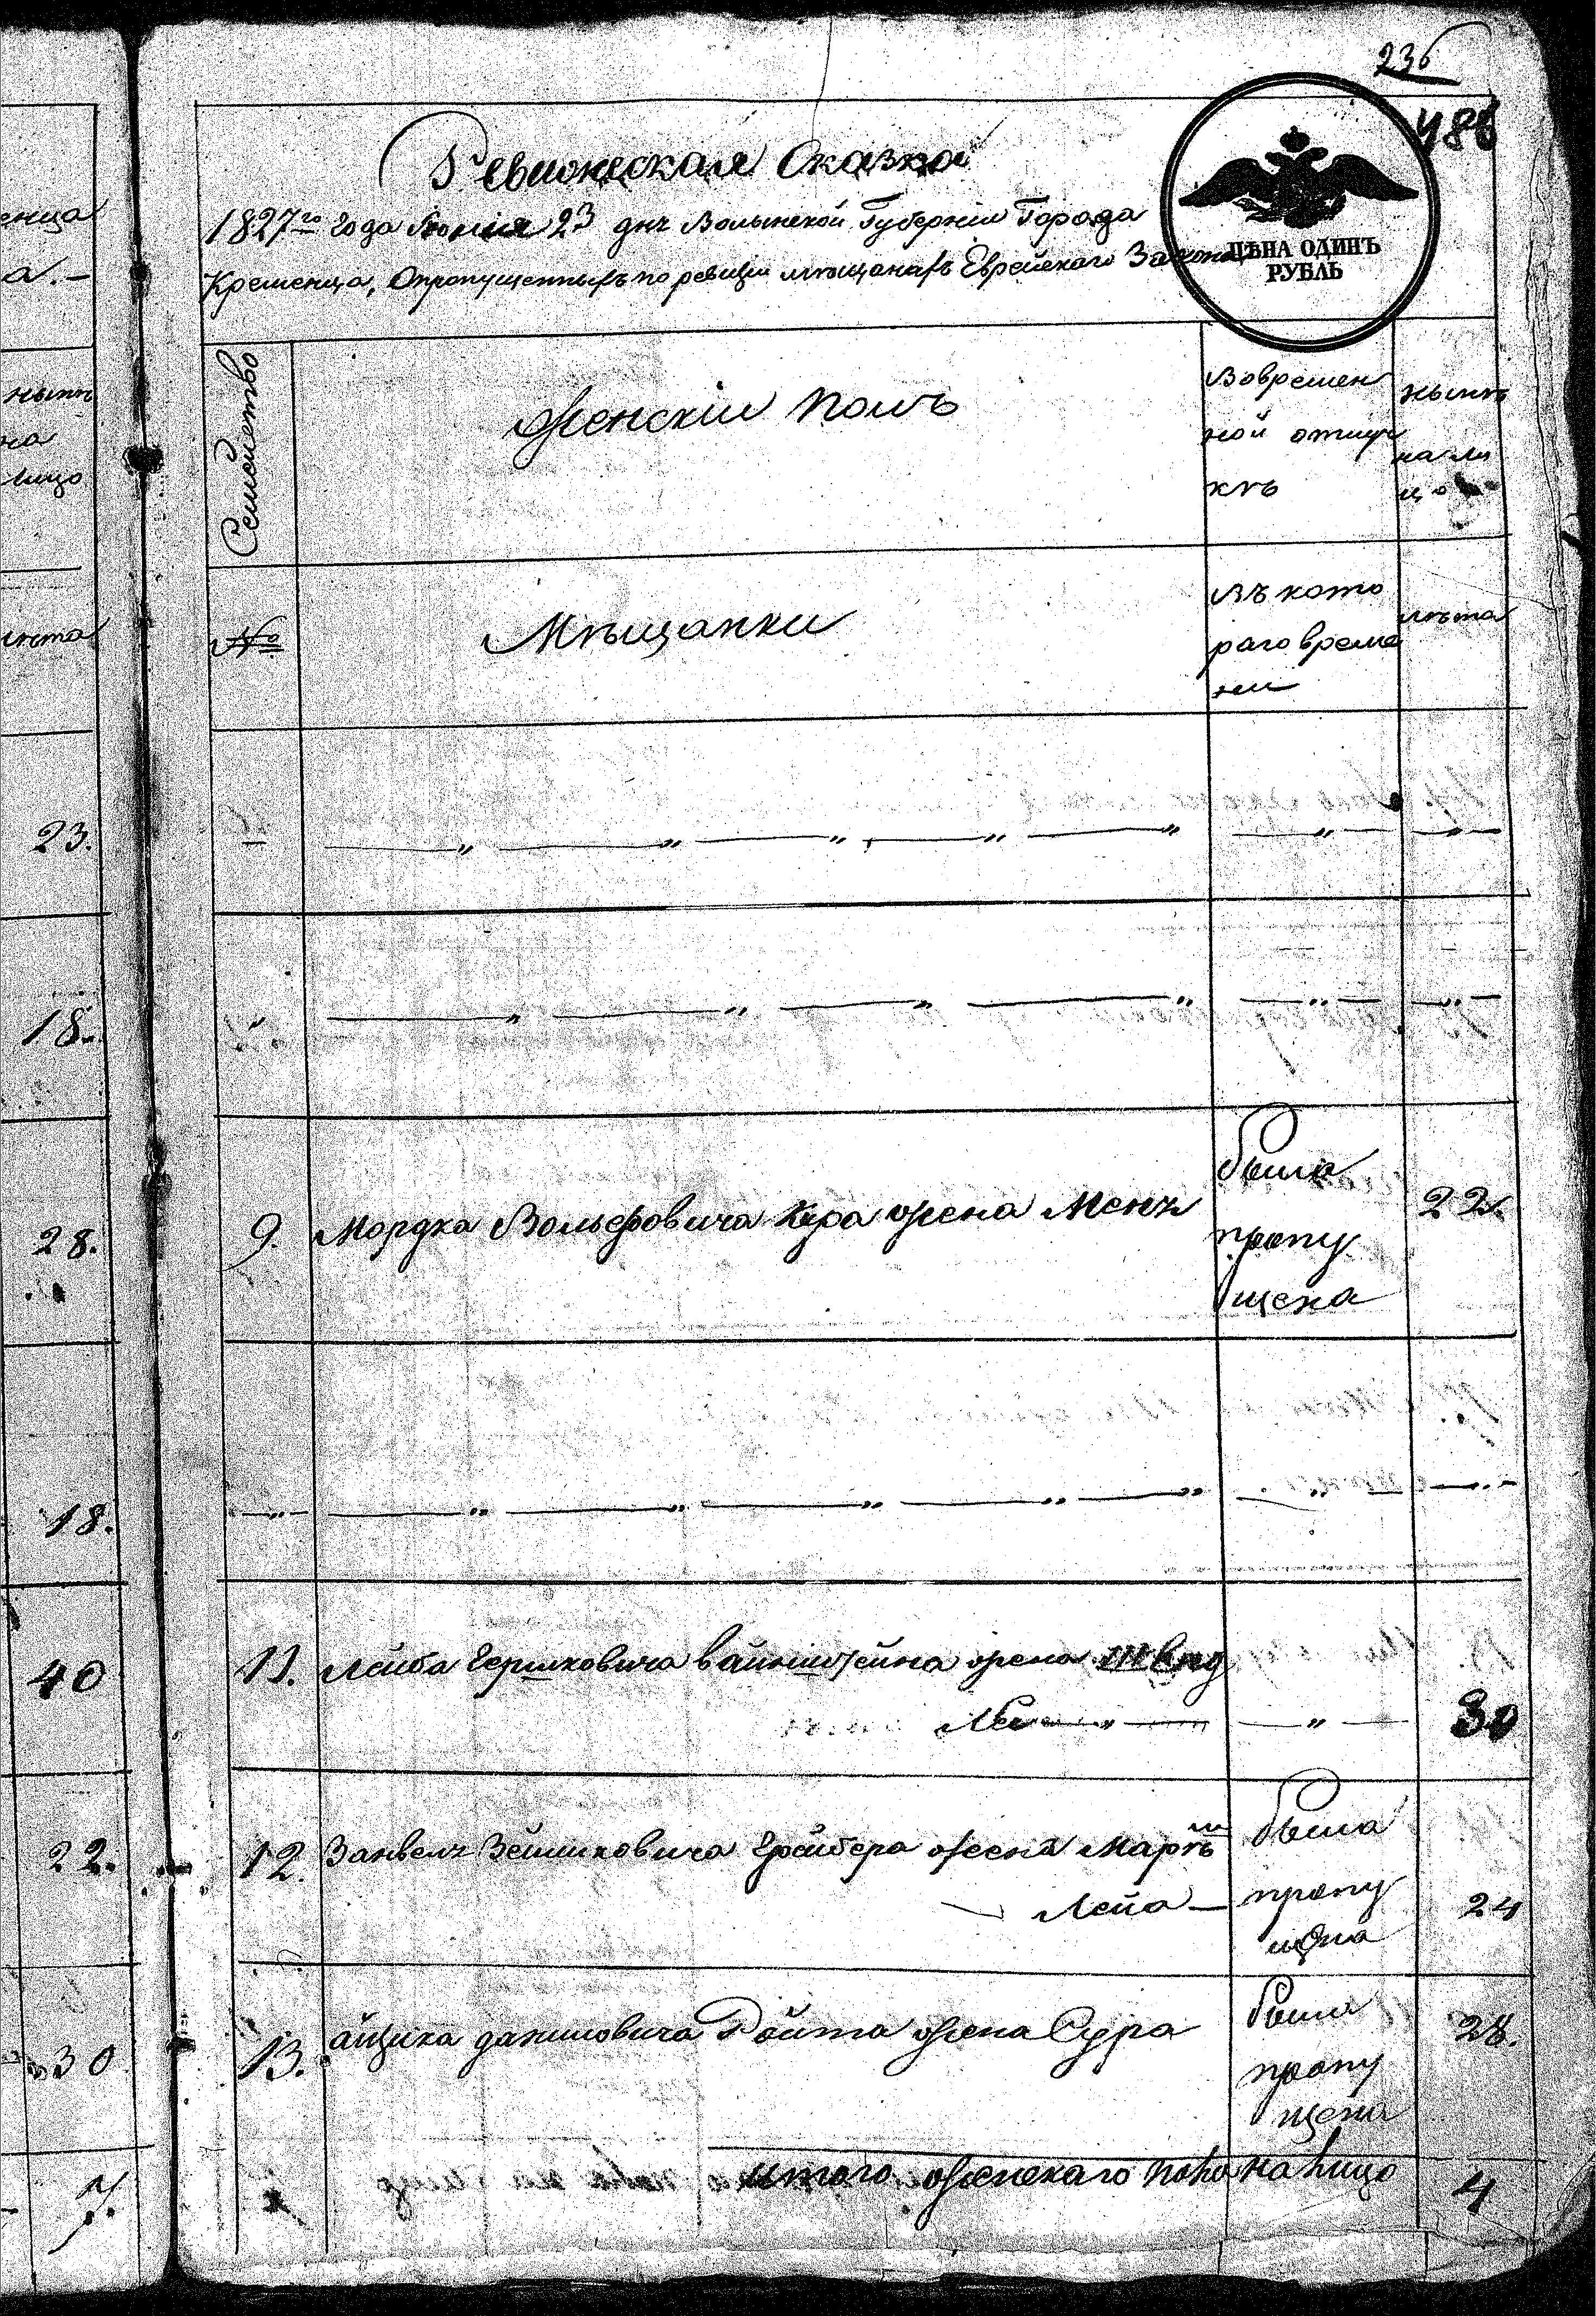 236
486
Ревижская Сказка
1827го года Июния 23 дня Волынской Губернии Города
Кременца, Опропущенныхъ по ревизии мѣщанахъ Еврейскаго Закона
ЦѢНА ОДИНЪ
РУБЛЬ
Семейство
Женскiй полъ
Вовремен
ной отлуч
кѣ
нынѣ
на ли
цо
№
Мѣщанки
въ кото
раго време
ни
лѣта
9. Мордка Вольфовича Кера жена Меня
была
пропу
щена
22.
11. Лейба Гершковича Вайнштейна жена
30
12. Занвель Зейликовича Грайбера жена
Лейа
была
пропу
щена
24
13. айзика даниловича Ройта жена Сура
была
пропу
щена
28.
итого женскаго пола на лицо 4
енца
а.
нынѣ
на
лицо
лѣта
23.
18.
28.
18.
40
22.
30
7.